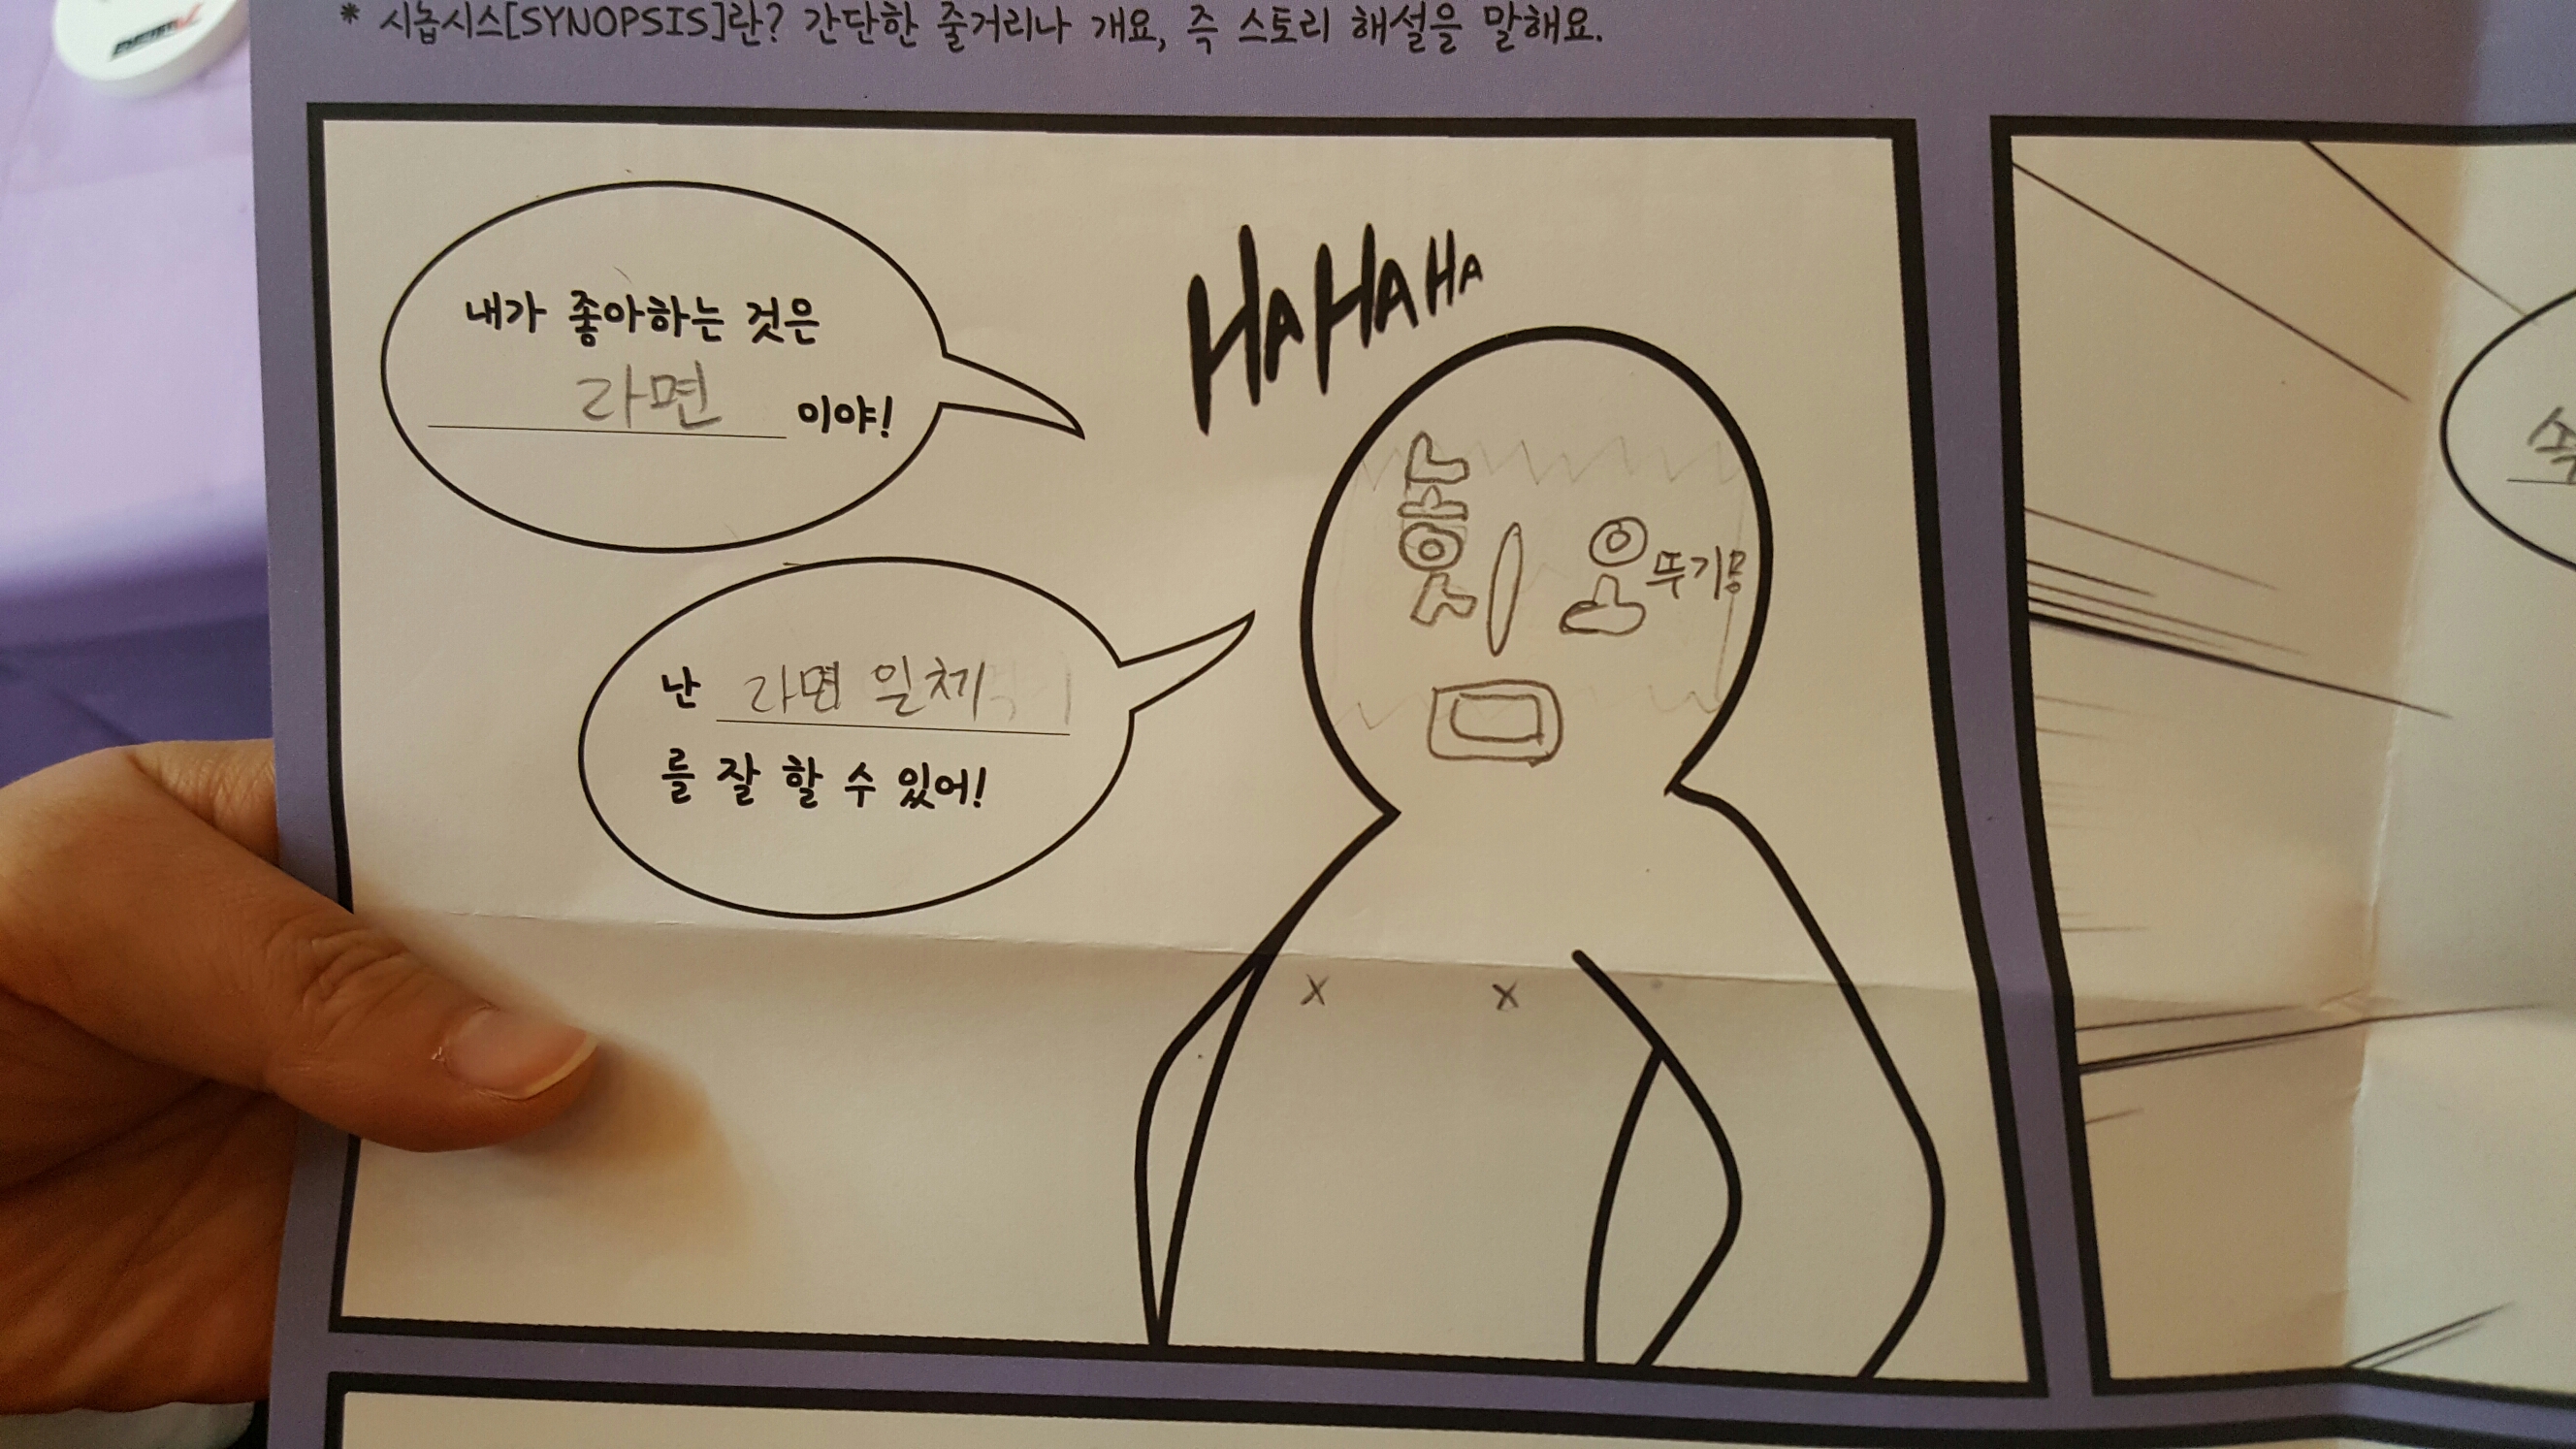 * 시놉시스[SYNOPSIS]란? 간단한 줄거리나 개요, 즉 스토리 해설을 말해요.
내가 좋아하는 것은
라면 이야!
HAHAHA
난 라면 일체
를 잘 할 수 있어!
농
심
오
뚜기